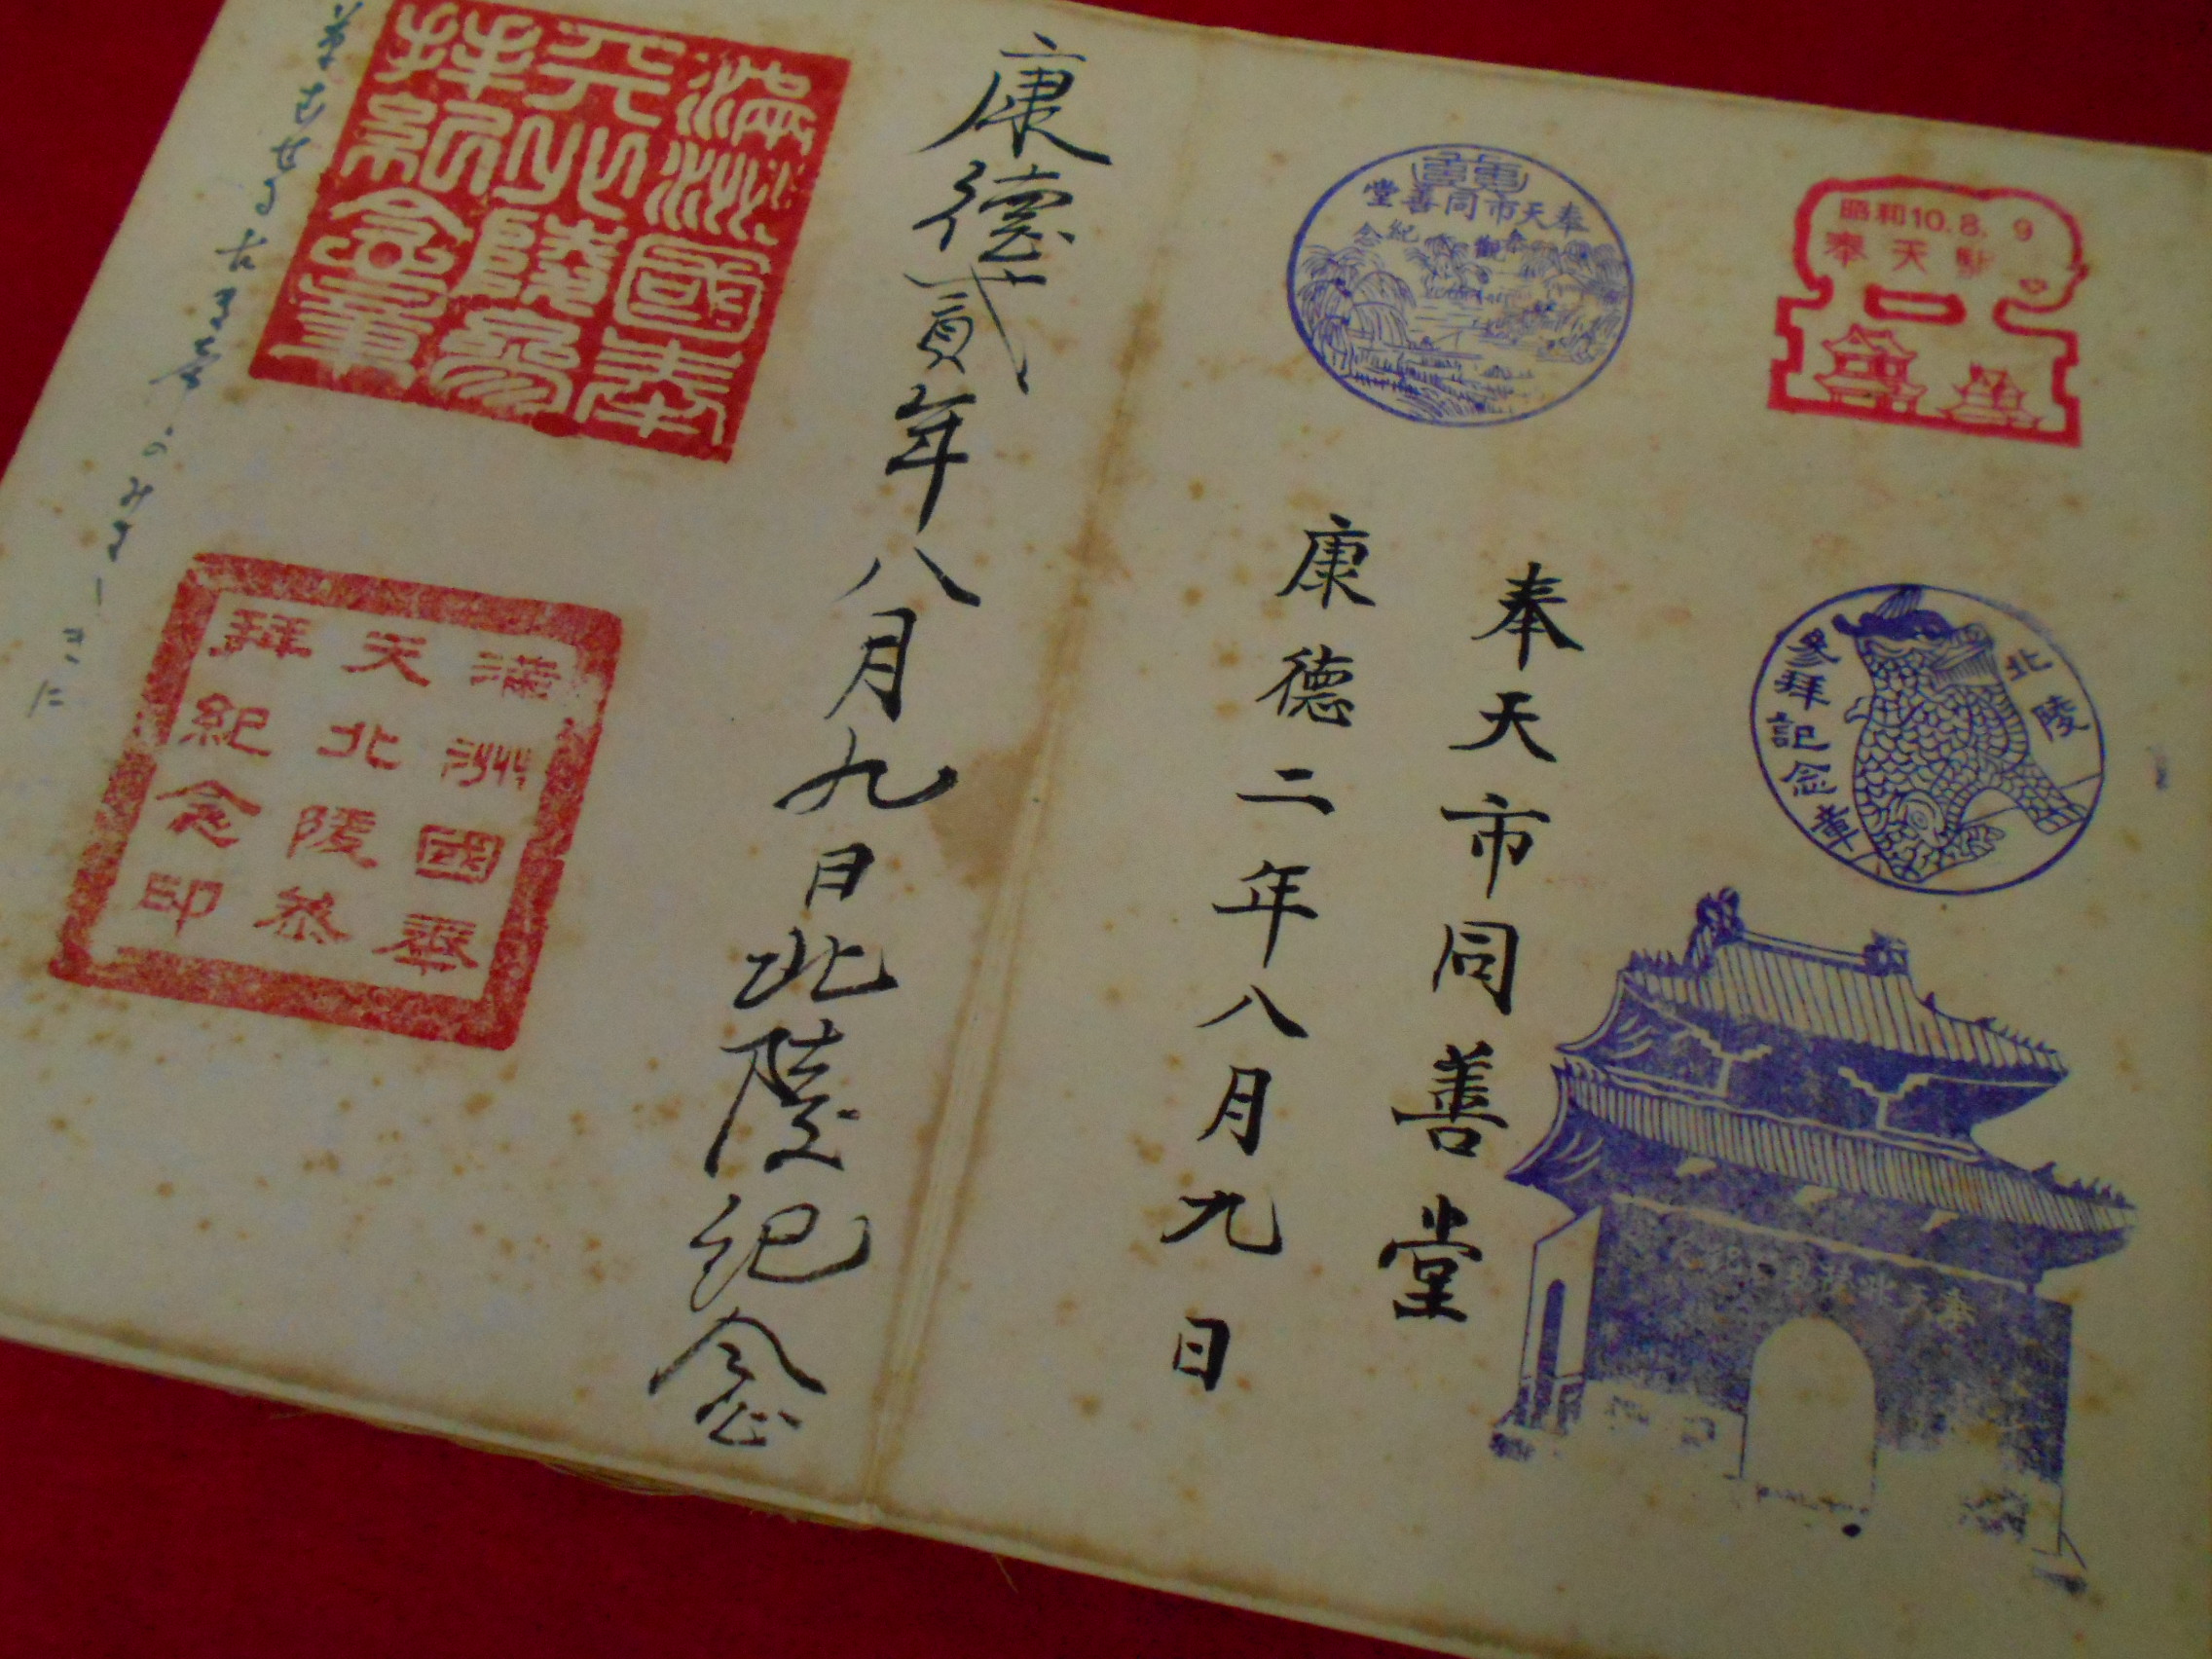 昭和10.8.9
奉天駅
北陵
参拜記念章
奉天市同善堂
参観紀念
奉天市同善堂
康德二年八月九日
康德貳年八月九日北陵紀念
滿洲國奉
天北陵參
拝紀念章
滿洲國奉
天北陵参
拜紀念印